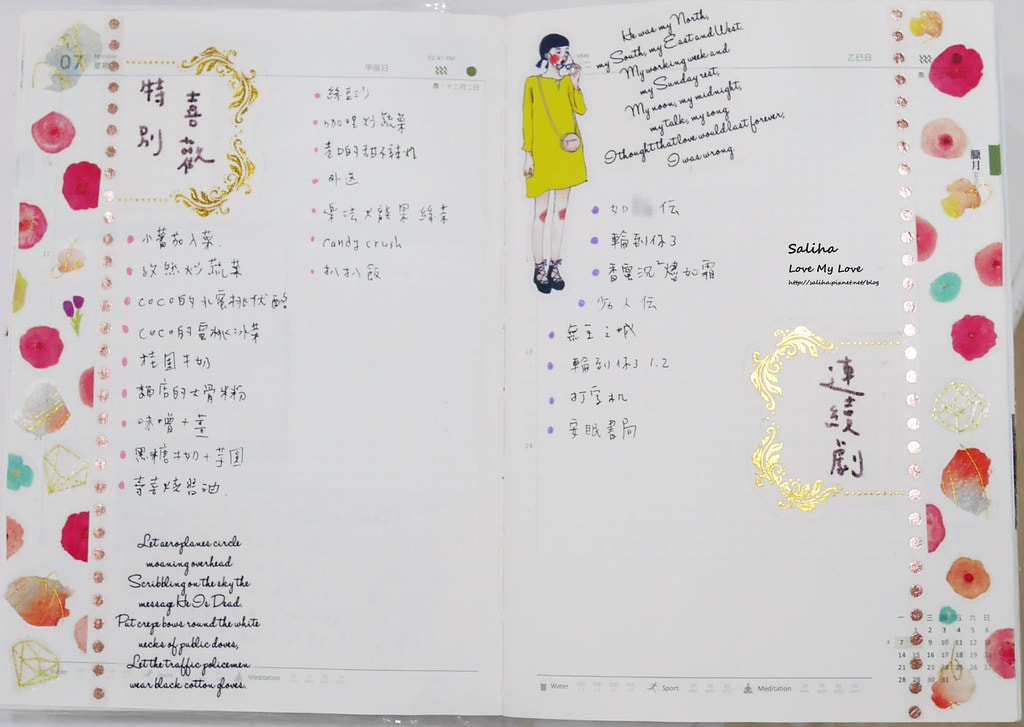 07
星期
特別
喜歡
02:47 PM
甲辰日
農:十二月二日
小蕃茄入菜.
孜然炒蔬菜
COCO的乳蜜桃优酪
COCO的蜜桃冰茶
桂圆牛奶
麵店的大骨米粉
味噌+薑
黑糖牛奶+芋圆
壽喜燒醬油.
綠豆沙
咖哩炒蔬菜
外送
樂法大熊果 綠茶
candy crush
扒扒飯
Let aeroplanes circle
moaning overhead
Scribbling on the sky the
message He Is Dead.
Put crepe bows round the white
necks of public doves,
Let the traffic policemen
wear black cotton gloves.
Meditation
He was my North,
my South, my East and West.
My working week and
my Sunday rest,
My noon, my midnight,
my talk, my song
I thought that love would last forever,
I was wrong
乙巳日
臘月
如 伝
輪到你3
香蜜沉沉燼如霜
無主之城
輪到你3 1.2
安眠書局
Saliha
Love My Love
http://saliha.pixnet.net/blog
連續劇
一 二 三 四 五 六 日
1 2 3 4 5 6
7
14 15 16 17 18 19 20
21 22 23 24 25 26 27
28 29 30 31
Water
Sport
Meditation